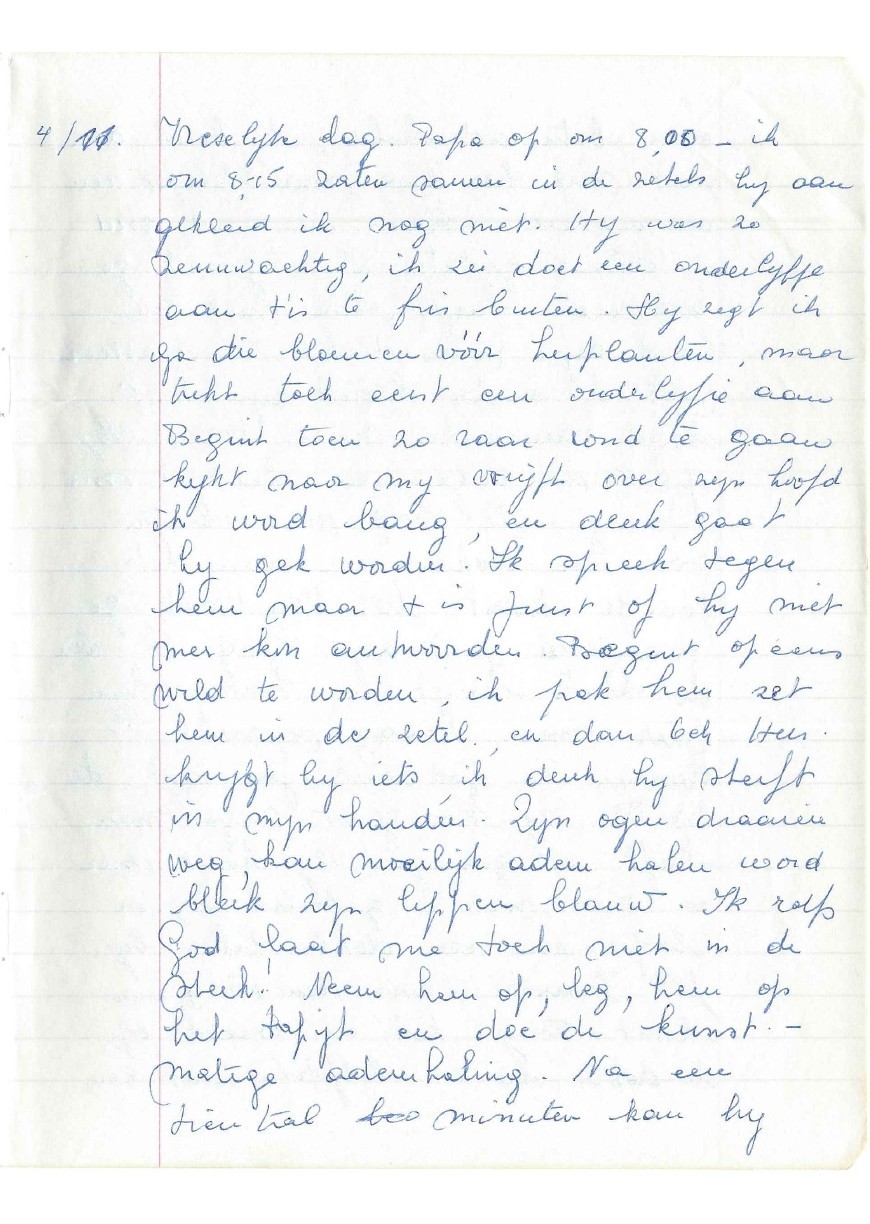 4/11. Vreselyk dag. Papa op om 8,00 - ik
om 8-15 zaten samen in de zetels hy aan
gekleed ik nog niet. Hy was zo
zenuwachtig, ik zei doet een onderlyfje
aan t'is te fris buiten. Hy zegt ik
ga die bloemen vóór herplanten, maar
trekt toch eerst een onderlyfje aan
Begint toen zo raar rond te gaan
kykt naar my vrijft over zyn hoofd
ik word bang, en denk gaat
hy gek worden. Ik spreek tegen
hem maar t is just of hy niet
mer kon antwoorden. Begint opeens
wild te worden, ik pak hem zet
hem in de zetel, en dan och Heer.
krygt hy iets, ik denk hy sterft
in myn handen. Zyn ogen draaien
weg, kan moeilijk adem halen word
bleik zyn lippen blauw. Ik roep
God laat me toch niet in de
steek! Neem hem op, leg, hem op
het tapijt en doe de kunst. -
matige ademhaling. Na een
tien tal minuten kan hy